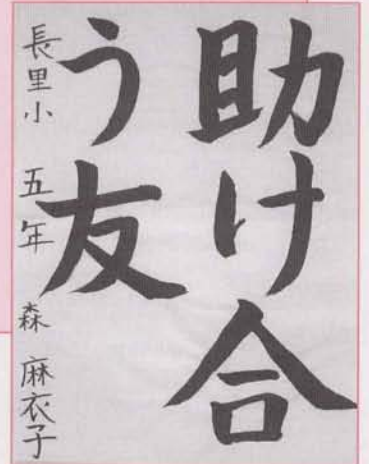 助け合
う友
長里小 五年 森 麻衣子